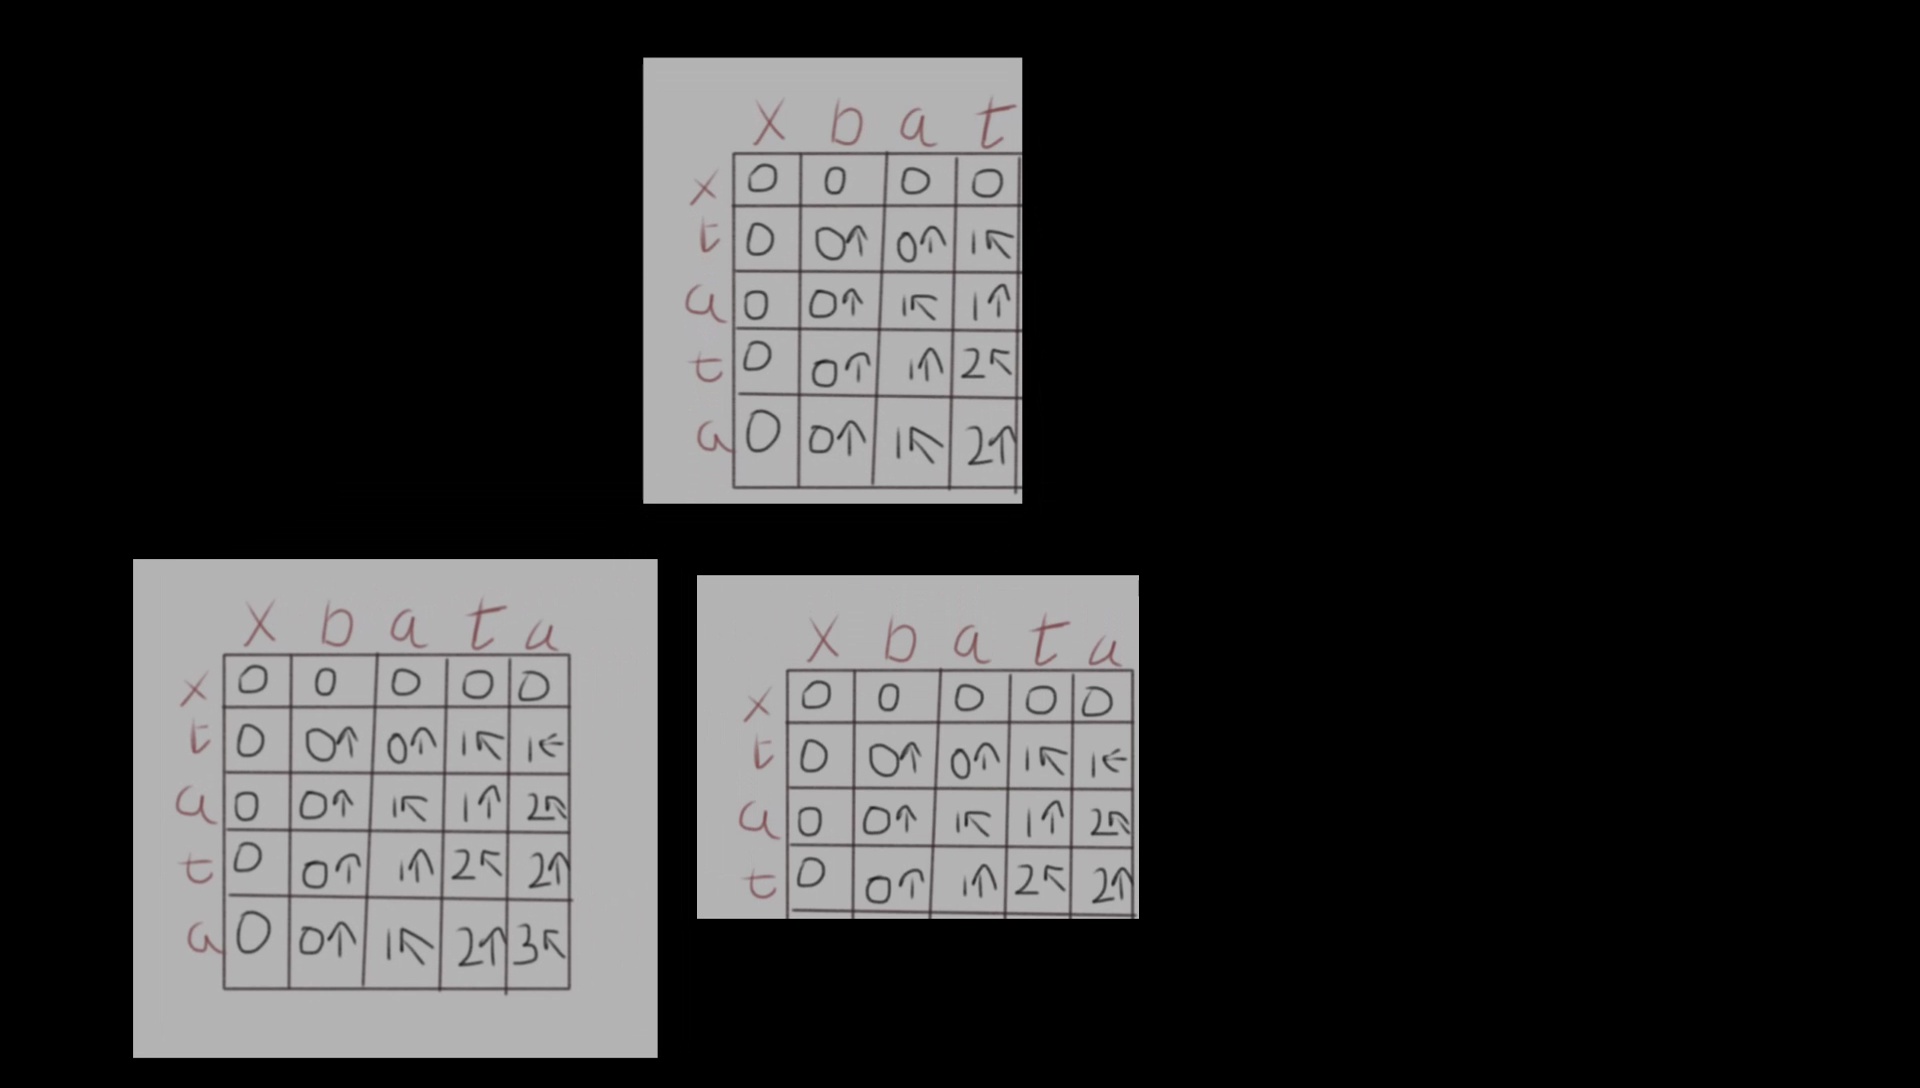 X b a t
x 0 0 0 0
t 0 0↑ 0↑ 1↖
a 0 0↑ 1↖ 1↑
t 0 0↑ 1↑ 2↖
a 0 0↑ 1↖ 2↑
X b a t a
x 0 0 0 0 0
t 0 0↑ 0↑ 1↖ 1←
a 0 0↑ 1↖ 1↑ 2↖
t 0 0↑ 1↑ 2↖ 2↑
a 0 0↑ 1↖ 2↑ 3↖
X b a t a
x 0 0 0 0 0
t 0 0↑ 0↑ 1↖ 1←
a 0 0↑ 1↖ 1↑ 2↖
t 0 0↑ 1↑ 2↖ 2↑